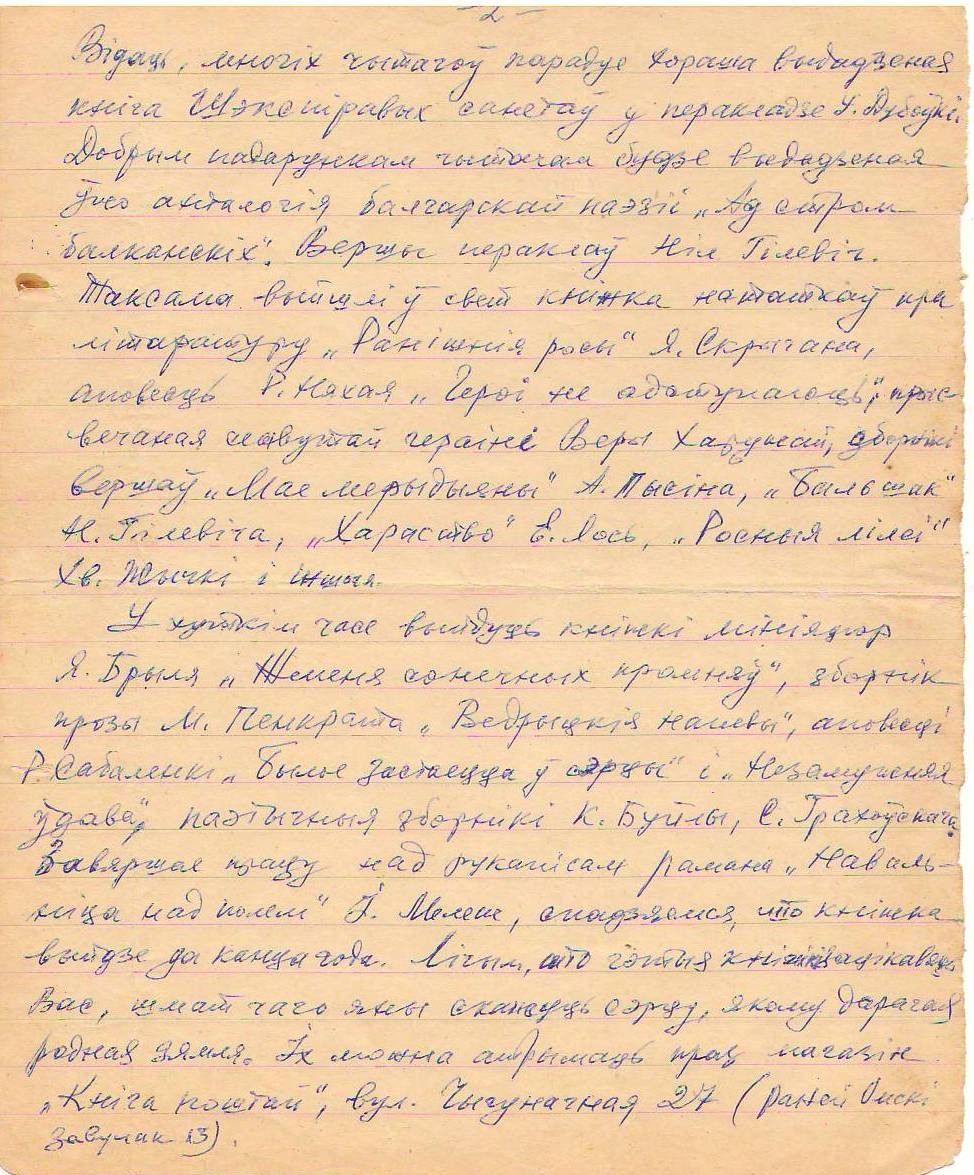 – 2 –
Відаць, многіх чытачоў парадуе хораша выдадзеная
кніга Шэкспіравых санетаў у перакладзе У. Дубоўкі.
Добрым падарункам чытачам будзе выдадзеная
ўжо анталогія балгарскай паэзіі „Ад стром
балканскіх". Вершы пераклаў Ніл Гілевіч.
Таксама выйшлі ў свет кніжка нататкаў пра
літаратуру „Ранішнія росы" Я. Скрыгана,
аповесць Р. Няхая „Героі не адступаюць", прыс-
вечаная славутай гераіні Веры Харужай, зборнікі
вершаў „Мае мерыдыяны" А. Пысіна, „Бальшак"
Н. Гілевіча, „Хараство" Е. Лось, „Росныя лілеі"
Хв. Жычкі і іншыя.
У хуткім часе выйдуць кніжкі мініяцюр
Я. Брыля „Жменя сонечных промняў", зборнік
прозы М. Пенкрата „Ведрыцкія напевы", аповесці
Р. Сабаленкі „Былое застаецца ў сэрцы" і „Незамужняя
ўдава", паэтычныя зборнікі К. Буйлы, С. Грахоўскага.
Завяршае працу над рукапісам рамана „Наваль-
ніца над полем" І. Мележ, спадзяемся, што кніжка
выйдзе да канца года. Лічым, што гэтыя кнігі зацікавяць
Вас, шмат чаго яны скажуць сэрцу, якому дарагая
родная зямля. Іх можна атрымаць праз магазін
„Кніга поштай", вул. Чыгуначная 27 (раней Омскі
завулак 13).